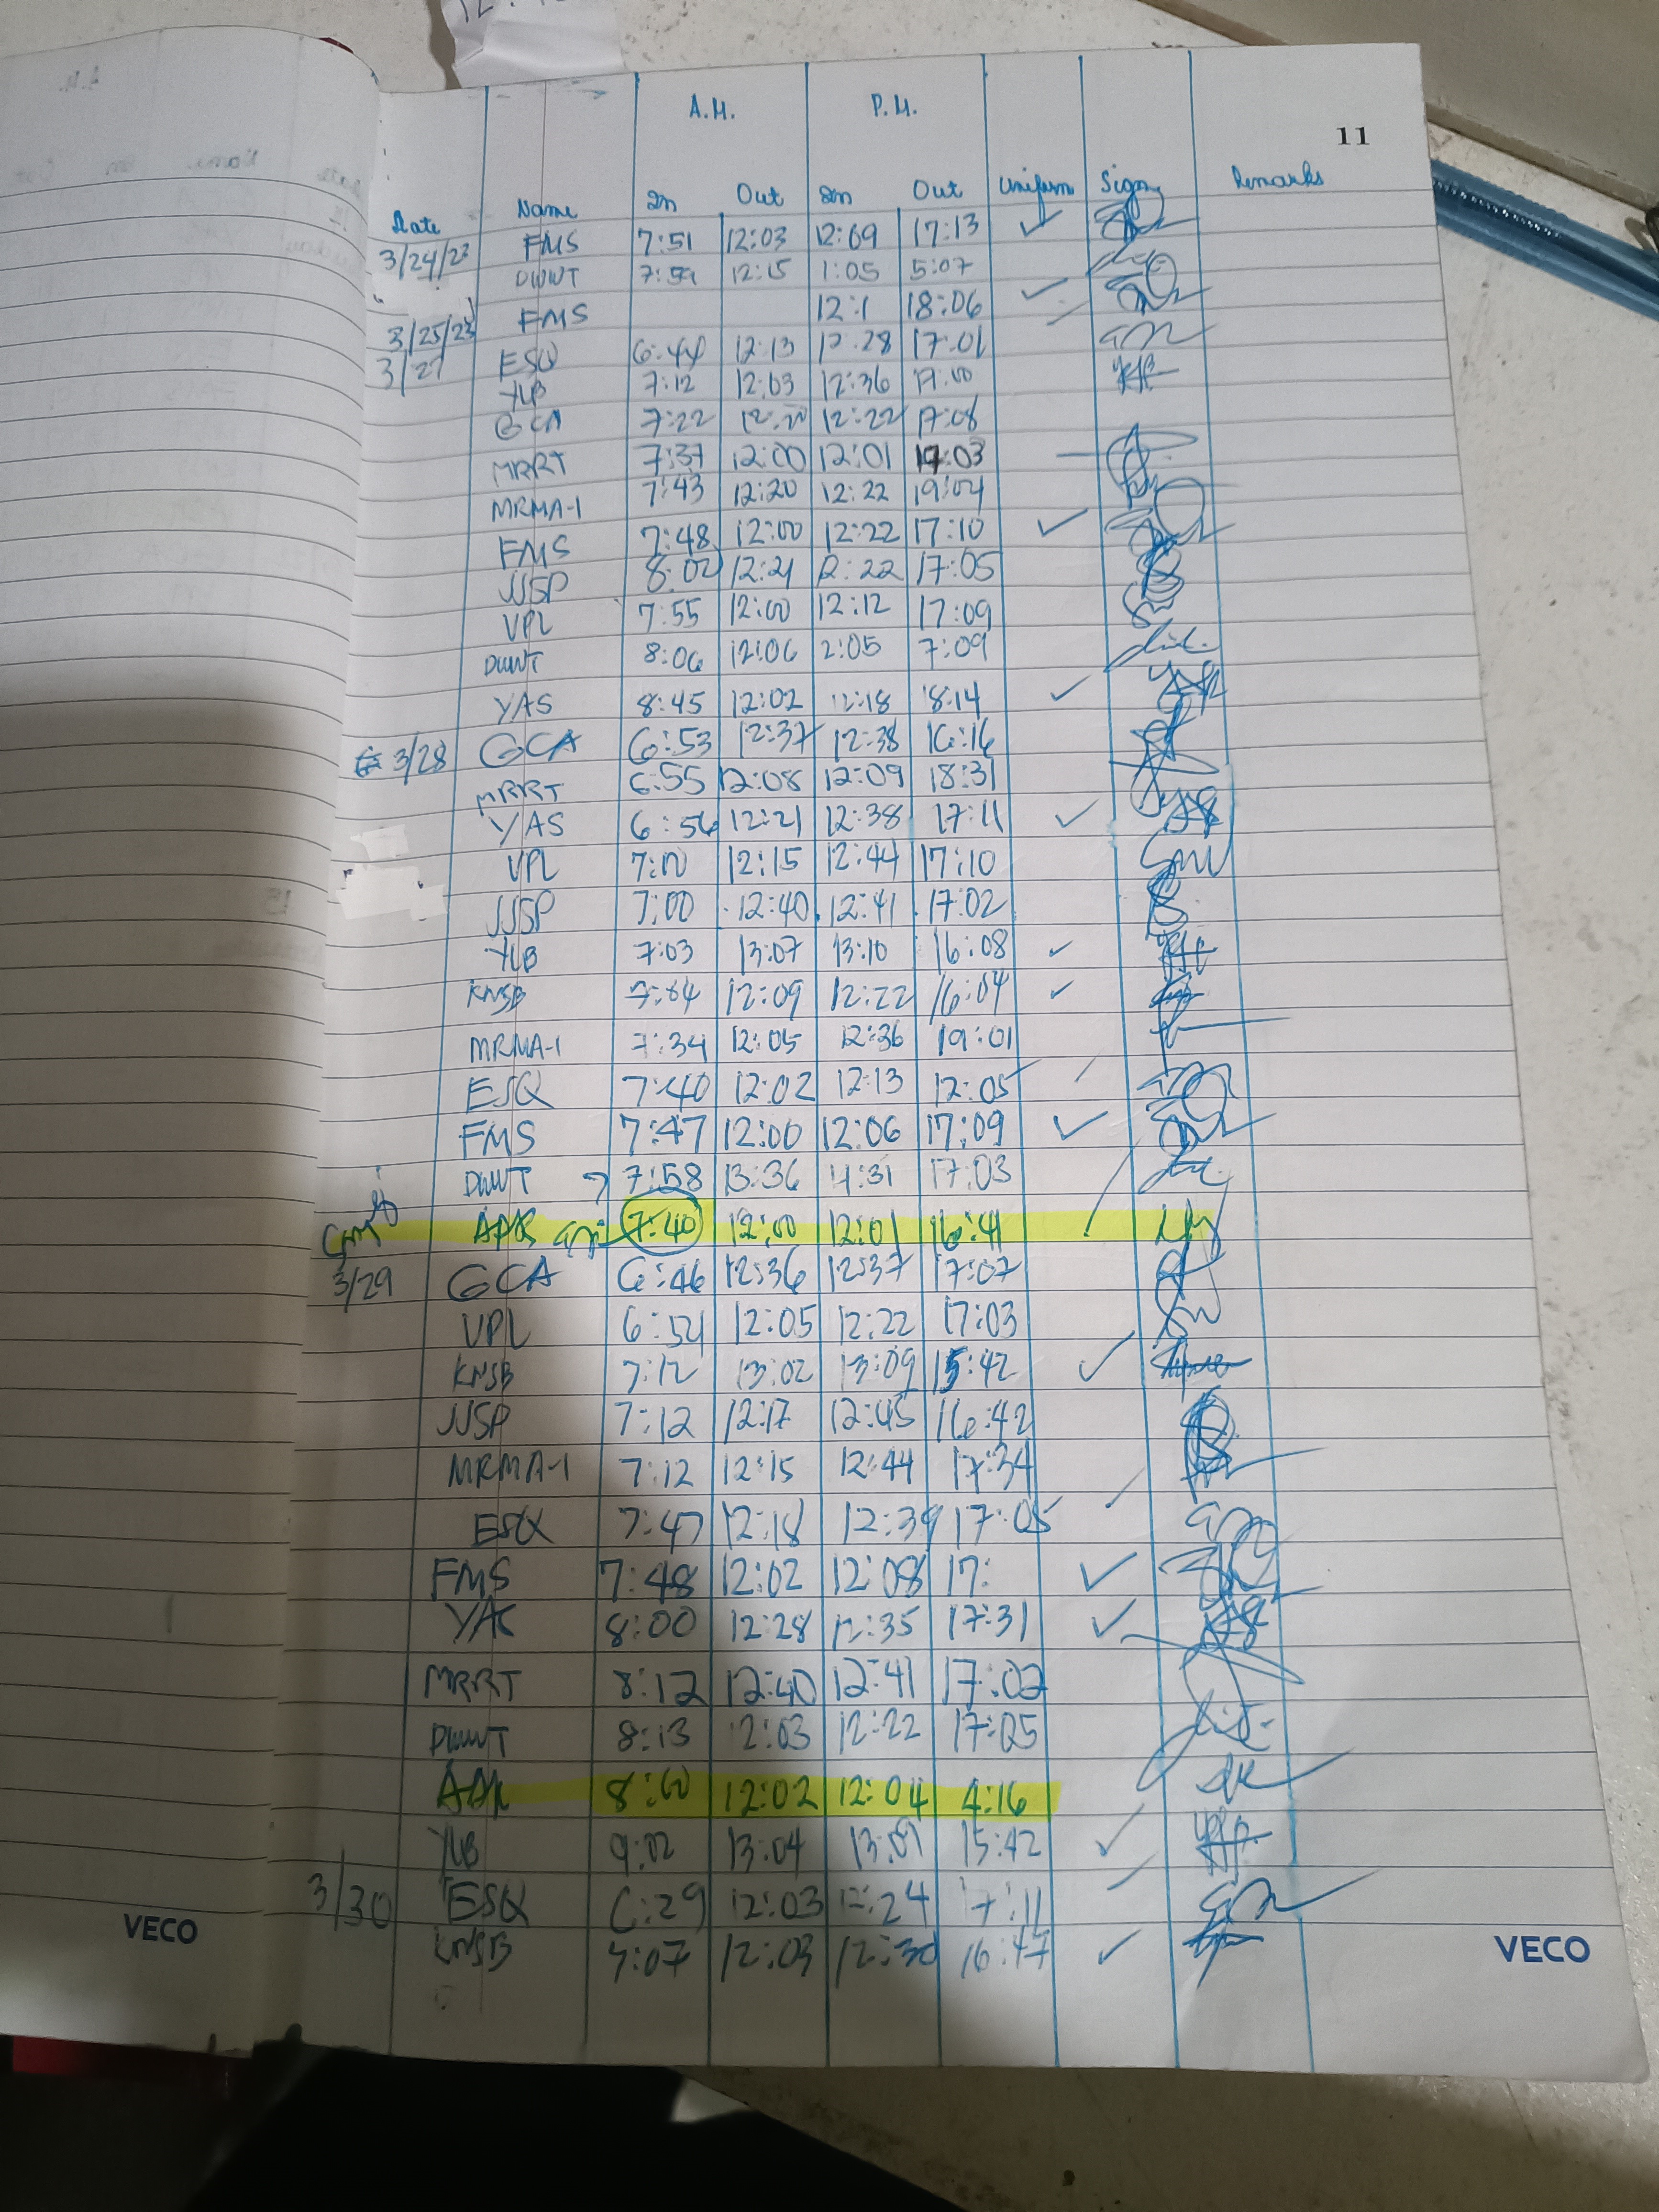 A.M. P.M.
11
Date Name In Out In Out Uniform Sign Remarks
3/24/23 FMS 7:51 12:03 12:09 17:13 ✓
DWNT 7:59 12:15 1:05 5:07
3/25/23 FMS 12:1 18:06 ✓
3/27 ESQ 6:44 12:13 12:28 17:01
YLB 7:12 12:03 12:36 17:00
GCA 7:22 12:22 17:08
MRRT 7:37 12:00 12:01 17:03
MRMA-1 7:43 12:20 12:22 19:04
FMS 7:48 12:00 12:22 17:10 ✓
JJSP 8:02 12:21 12:22 17:05
VPL 7:55 12:00 12:12 17:09
DWNT 8:06 12:06 2:05 7:09
YAS 8:45 12:02 12:18 18:14 ✓
3/28 GCA 6:53 12:37 12:38 16:16
MRRT 6:55 12:08 12:09 18:31
YAS 6:56 12:21 12:38 17:11 ✓
VPL 7:00 12:15 12:44 17:10
JJSP 7:00 12:40 12:41 17:02
YLB 7:03 13:07 13:10 16:08 ✓
KNSB 7:04 12:09 12:22 16:04 ✓
MRMA-1 7:34 12:05 12:36 19:01
ESQ 7:40 12:02 12:13 12:05
FMS 7:47 12:00 12:06 17:09 ✓
DWNT 7:58 13:36 17:03
7:40 12:00 12:01 16:41
3/29 GCA 6:46 12:36 12:37 17:07
VPL 6:54 12:05 12:22 17:03
KNSB 7:12 13:02 13:09 15:42 ✓
JJSP 7:12 12:17 12:45 16:42
MRMA-1 7:12 12:15 12:44 17:34
ESQ 7:47 12:18 12:39 17:05
FMS 7:48 12:02 12:08 17: ✓
YAS 8:00 12:28 12:35 17:31 ✓
MRRT 8:12 12:40 12:41 17:02
DWNT 8:13 12:03 12:22 17:05
8:00 12:02 12:04 4:16
YLB 9:02 13:04 13:09 15:42 ✓
3/30 ESQ 6:29 12:03 12:24 17:11
KNSB 7:07 12:03 12:30 16:47 ✓
VECO
VECO